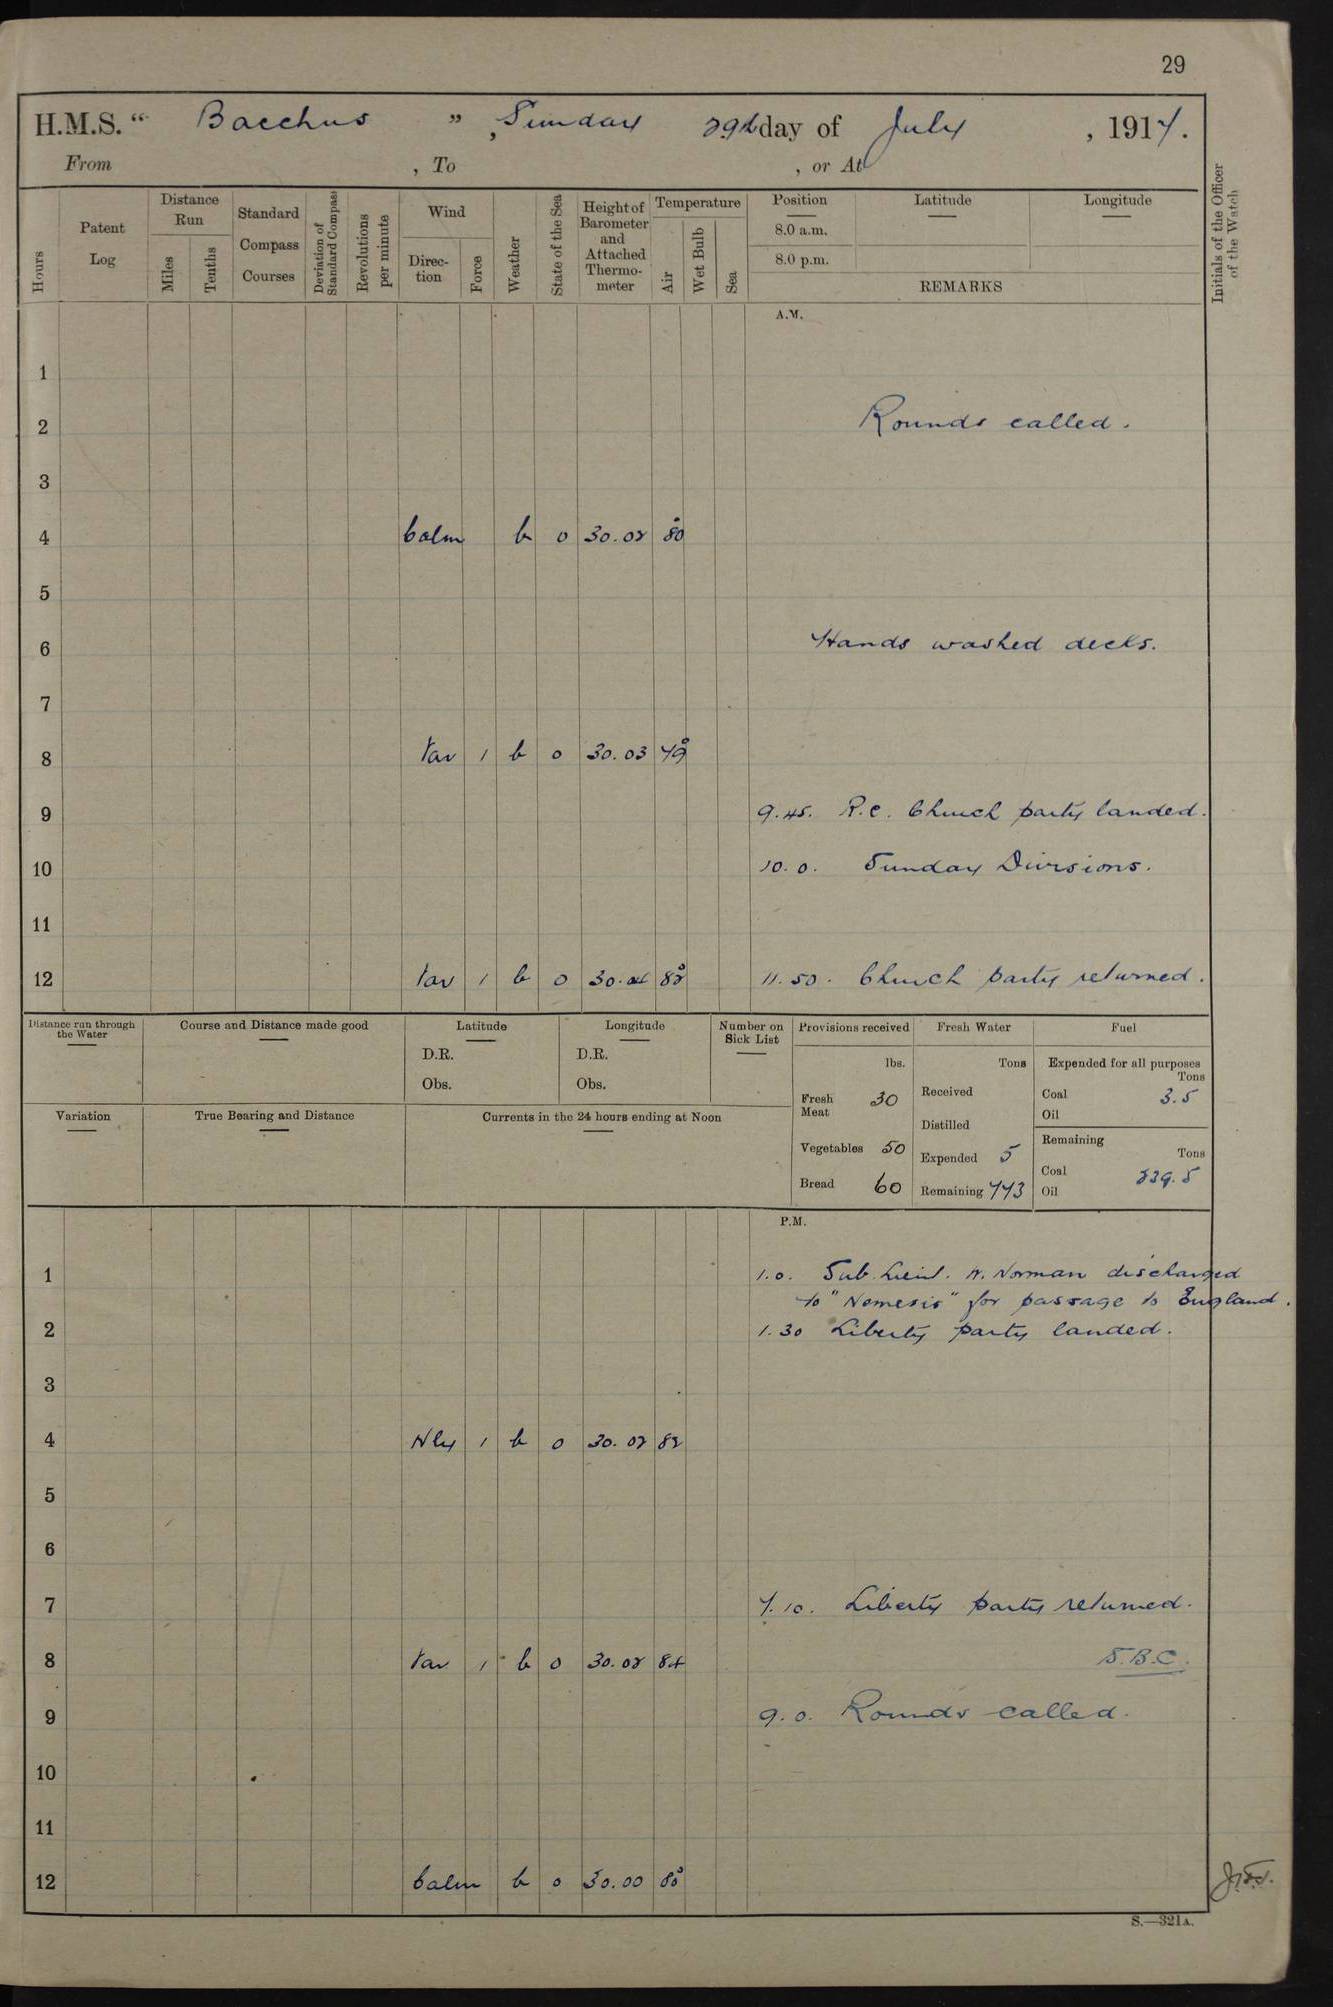 29
H.M.S. “ Bacchus ” , Sunday 29th day of July , 1917.
From , To , or At
Hours
Patent Log
Distance Run
Miles
Tenths
Standard Compass Courses
Deviation of Standard Compass
Revolutions per minute
Wind
Direc-tion
Force
Weather
State of the Sea
Height of Barometer and Attached Thermo-meter
Temperature
Air
Wet Bulb
Sea
Position
8.0 a.m.
8.0 p.m.
Latitude
Longitude
REMARKS
Initials of the Officer of the Watch
A.M.
1
2 Rounds called.
3
4 Calm b 0 30.02 80°
5
6 Hands washed decks.
7
8 Var 1 b 0 30.03 79°
9 9.45. R.C. Church party landed.
10 10.0. Sunday Divisions.
11
12 Var 1 b 0 30.04 82° 11.50. Church party returned.
Distance run through the Water
Course and Distance made good
Latitude
D.R.
Obs.
Longitude
D.R.
Obs.
Number on Sick List
Provisions received
lbs.
Fresh Meat 30
Vegetables 50
Bread 60
Fresh Water
Tons
Received
Distilled
Expended 5
Remaining 773
Fuel
Expended for all purposes
Tons
Coal 3.5
Oil
Remaining
Tons
Coal 839.5
Oil
Variation
True Bearing and Distance
Currents in the 24 hours ending at Noon
P.M.
1 1.0. Sub. Lieut. W. Norman discharged
to "Nemesis" for passage to England.
2 1.30 Liberty party landed.
3
4 Nly 1 b 0 30.02 82
5
6
7 7.10. Liberty party returned.
8 Var 1 b 0 30.02 84 S.B.C.
9 9.0. Rounds called.
10
11
12 Calm b 0 30.00 80°
S.—321A.